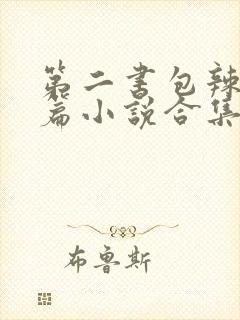 第二书包辣
篇小说合集
布鲁斯